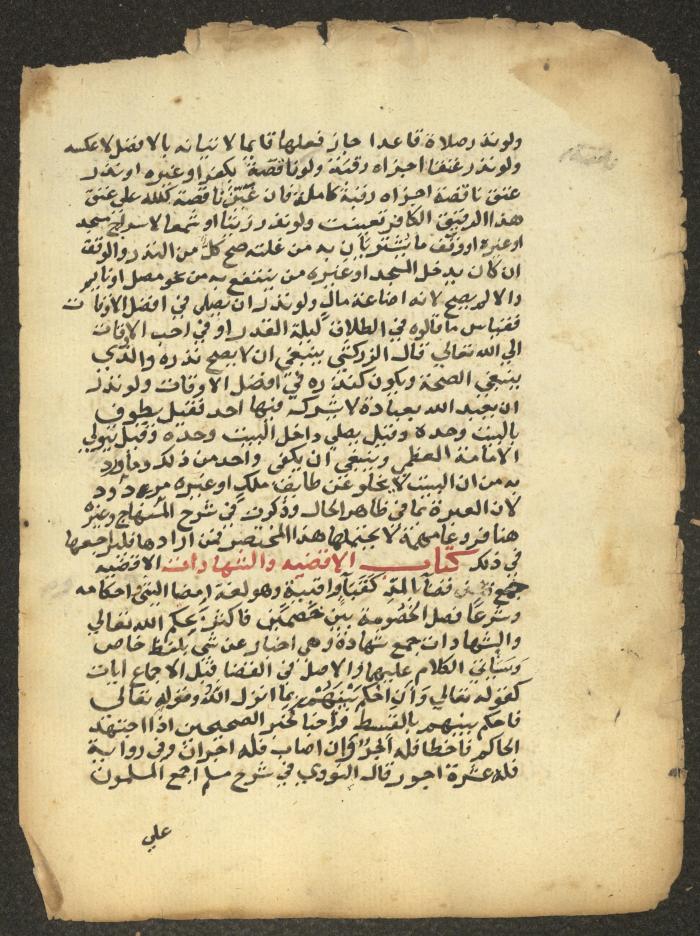 ولو نذر صلاة قاعدا جاز فعلها قايما لاتيانه بالافضل لا عكسه
ولو نذر عتقا اجزاه رقبة ولو ناقصة بكفر او غيره او نذر
عتق ناقصة اجزاه رقبة كاملة فان عين ناقصة كلله علي عتق
هذا الرقيق الكافر تعينت ولو نذر زيتا او شمعا لاسراج مسجد
او غيره او وقف ما يشتريان به من غلته صح كل من النذر والوقف
ان كان يدخل المسجد او غيره من ينتفع به من نحو مصل او نايم
والا لم يصح لانه اضاعة مال ولو نذر ان يصلي في افضل الاوقات
فقياس ما قالوه في الطلاق ليلة القدر او في احب الاوقات
الي الله تعالي قال الزركشي ينبغي ان لا يصح نذره والذي
ينبغي الصحة ويكون كنذره في افضل الاوقات ولو نذر
ان يعبد الله بعبادة لا يشركه فيها احد فقيل يطوف
بالبيت وحده وقيل يصلي داخل البيت وحده وقيل يتولي
الامامة العظمي وينبغي ان يكفي واحد من ذلك وما ورد
به من ان البيت لا يخلو عن طايف ملك او غيره مردود
لان العبرة بما في ظاهر الحال وذكرت في شرح المنهاج وغيره
هنا فروعا مهمة لا يحتملها هذا المختصر فمن ارادها فليراجعها
في ذلك كتاب الاقضيه والشهادات الاقضيه
جمع قضا بالمد كقبا واقبية وهو لغة امضا الشي واحكامه
وشرعا فصل الخصومة بين خصمين فاكثر بحكم الله تعالي
والشهادات جمع شهادة وهي اخبار عن شي بلفظ خاص
وسياتي الكلام عليها والاصل في القضا قبل الاجماع ايات
كقوله تعالي وان احكم بينهم بما انزل الله وقوله تعالي
فاحكم بينهم بالقسط واخبار كخبر الصحيحين اذا اجتهد
الحاكم فاخطا فله اجر وان اصاب فله اجران وفي رواية
فله عشرة اجور قال النووي في شرح مسلم اجمع المسلمون
علي